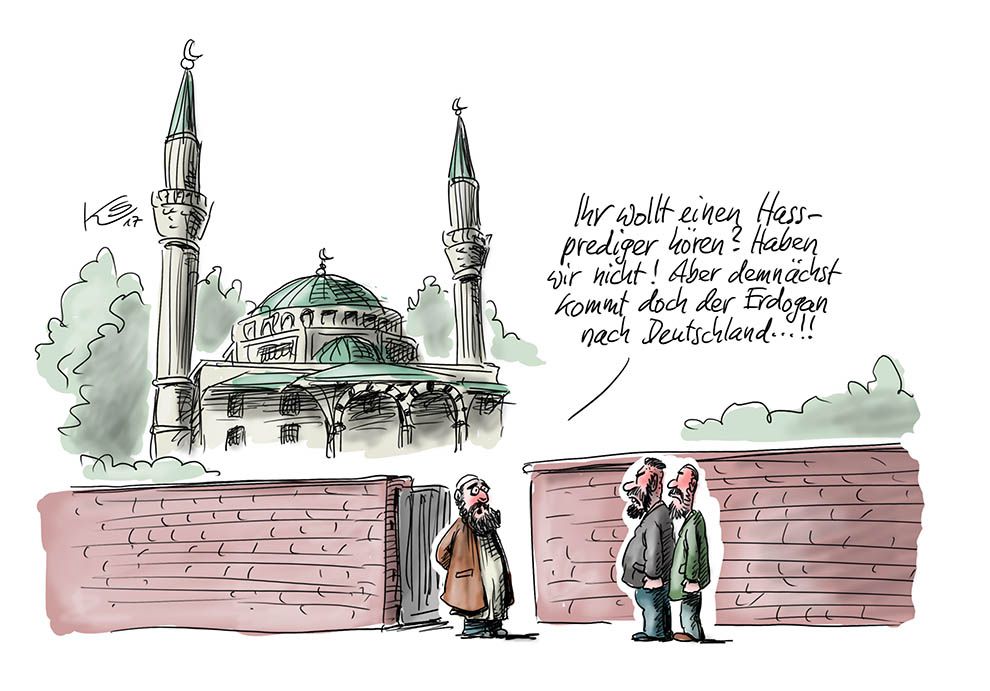 Ihr wollt einen Hass-
prediger hören? Haben
wir nicht! Aber demnächst
kommt doch der Erdogan
nach Deutschland...!!
17